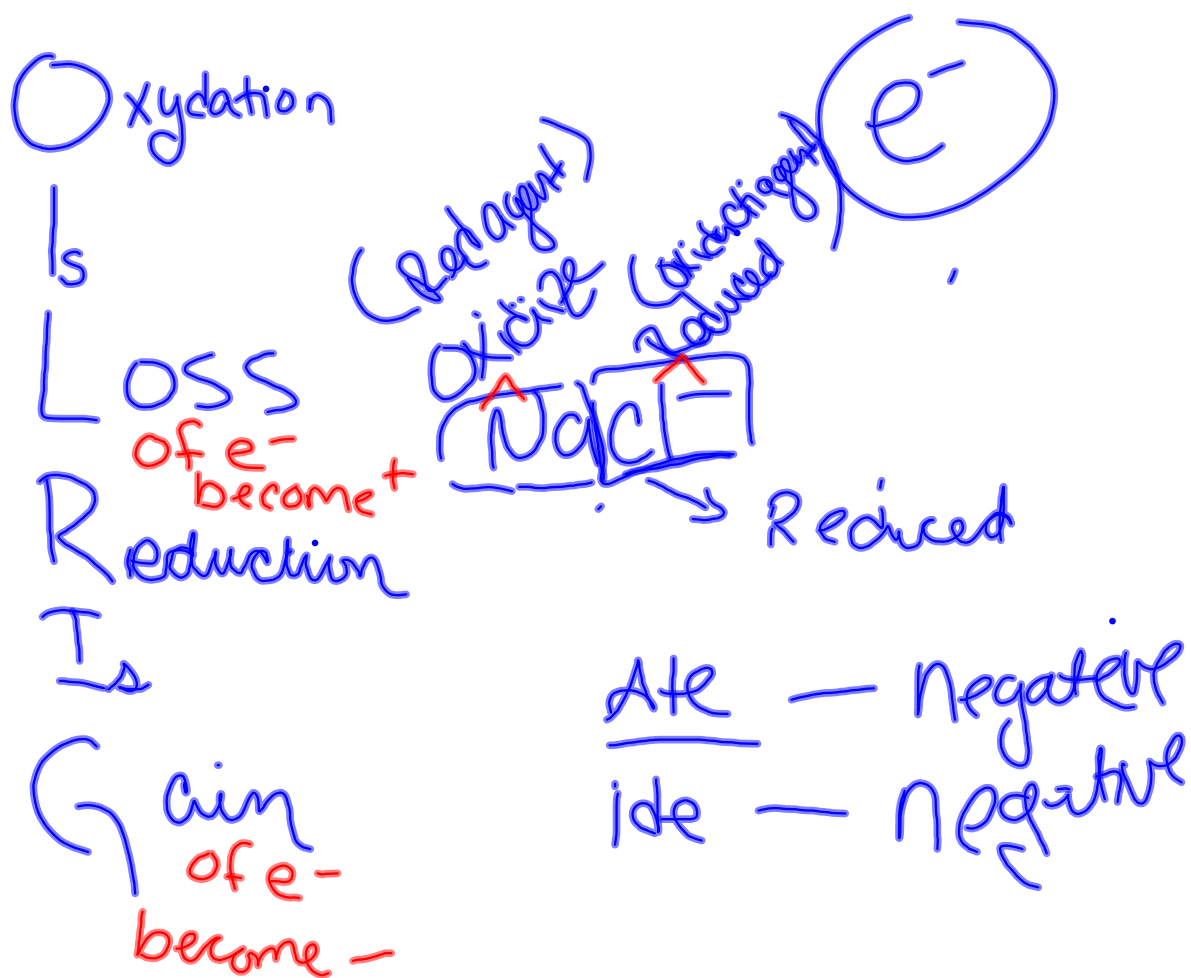 Oxydation
Is
Loss
of e-
become +
Reduction
Is
Gain
of e-
become -
e-
(Red agent)
Oxidize
Reduced
NaCl-
Reduced
Ate — negative
ide — negative